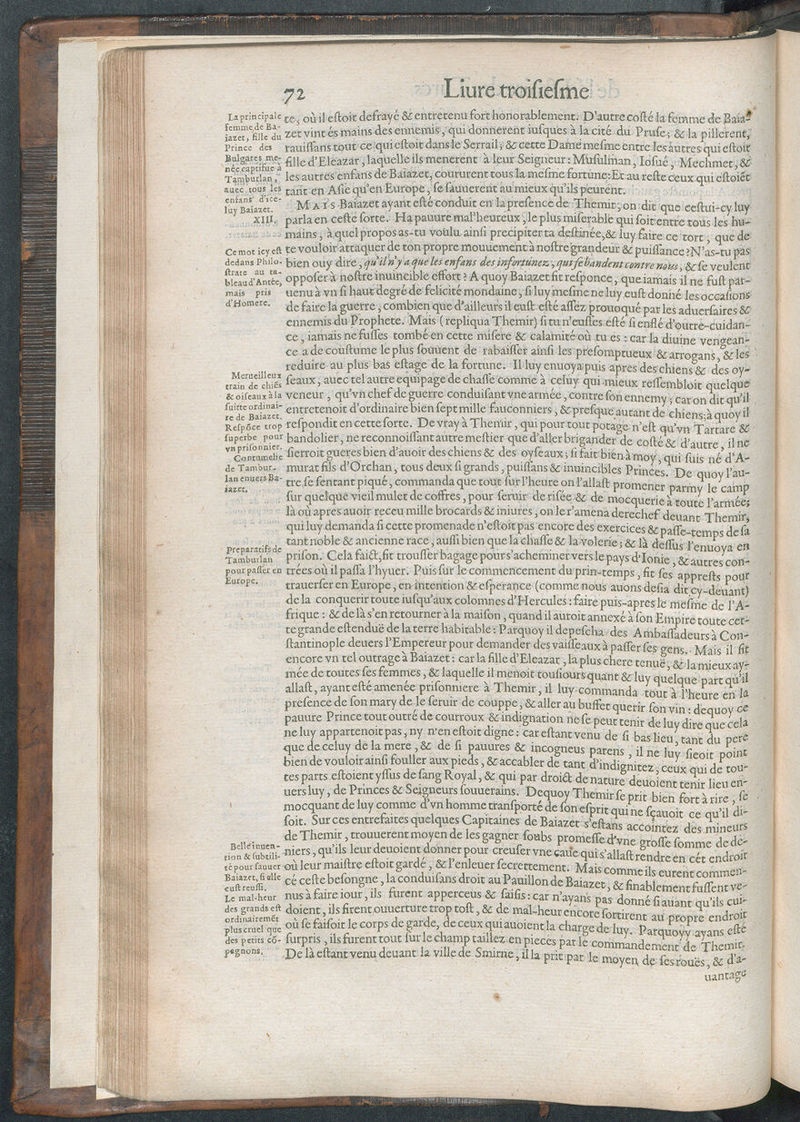 72
Liure troiſieſme
La principale
femme de Ba-
iazet, fille du
Prince des
Bulgares me-
née captiſue à
Tamburlan,
auec tous les
enfans d'ice-
luy Baiazet.
XIII.
te, où il eſtoit defrayé & entretenu fort honorablement. D'autre coſté la femme de Baia-
zet vint és mains des ennemis, qui donnerent iuſques à la cité du Pruſe; & la pillerent,
rauiſſans tout ce qui eſtoit dans le Serrail; & cette Dame meſme entre les autres qui eſtoit
fille d'Eleazar, laquelle ils menerent à leur Seigneur: Muſulman, Ioſué, Mechmet, &
les autres enfans de Baiazet, coururent tous la meſme fortune: Et au reſte ceux qui eſtoiét
tant en Aſie qu'en Europe, ſe ſauuerent au mieux qu'ils peurent.
MAIS Baiazet ayant eſté conduit en la preſence de Themir, on dit que ceſtui-cy luy
parla en ceſte ſorte. Ha pauure mal'heureux, le plus miſerable qui ſoit entre tous les hu-
mains, à quel propos as-tu voulu ainſi precipiter ta deſtinée, & luy faire ce tort, que de
Ce mot icy eſt
dedans Philo-
ſtrate au ta-
bleau d'Antée,
mais pris
d'Homere.
te vouloir attaquer de ton propre mouuement à noſtre grandeur & puiſſance? N'as-tu pas
bien ouy dire, qu'il n'y a que les enfans des infortunez, qui ſe bandent contre nous, & ſe veulent
oppoſer à noſtre inuincible effort? A quoy Baiazet fit reſponce, que iamais il ne fuſt par-
uenu à vn ſi haut degré de felicité mondaine, ſi luy meſme ne luy euſt donné les occaſions
de faire la guerre, combien que d'ailleurs il euſt eſté aſſez prouoqué par les aduerſaires &
ennemis du Prophete. Mais (repliqua Themir) ſi tu n'euſſes eſté ſi enflé d'outre-cuidan-
ce, iamais ne fuſſes tombé en cette miſere & calamité où tu es: car la diuine vengean-
ce a de couſtume le plus ſouuent de rabaiſſer ainſi les preſomptueux & arrogans, & les
reduire au plus bas eſtage de la fortune. Il luy enuoya puis apres des chiens & des oy-
Merueilleux
train de chiés
& oiſeaux à la
ſuitte ordinai-
re de Baiazet.
Reſpóce trop
ſuperbe pour
vn priſonnier.
Contumelie
de Tambur-
lan enuers Ba-
iazet.
ſeaux, auec tel autre equipage de chaſſe comme à celuy qui mieux reſſembloit quelque
veneur, qu'vn chef de guerre conduiſant vne armée, contre ſon ennemy; car on dit qu'il
entretenoit d'ordinaire bien ſept mille fauconniers, & preſque autant de chiens: à quoy il
reſpondit en cette ſorte. De vray à Themir, qui pour tout potage n'eſt qu'vn Tartare &
bandolier, ne reconnoiſſant autre meſtier que d'aller brigander de coſté & d'autre, il ne
ſierroit gueres bien d'auoir des chiens & des oyſeaux; ſi fait bien à moy, qui ſuis né d'A-
murat fils d'Orchan, tous deux ſi grands, puiſſans & inuincibles Princes. De quoy l'au-
tre ſe ſentant piqué, commanda que tout ſur l'heure on l'allaſt promener parmy le camp
ſur quelque vieil mulet de coffres, pour ſeruir de riſée & de mocquerie à toute l'armée;
là où apres auoir receu mille brocards & iniures, on le r'amena derechef deuant Themir,
qui luy demanda ſi cette promenade n'eſtoit pas encore des exercices & paſſe-temps de ſa
tant noble & ancienne race, auſſi bien que la chaſſe & la volerie; & là deſſus l'enuoya en
Preparatifs de
Tamburlan
pour paſſer en
Europe.
priſon. Cela faict, fit trouſſer bagage pour s'acheminer vers le pays d'Ionie, & autres con-
trées où il paſſa l'hyuer. Puis ſur le commencement du prin-temps, fit ſes appreſts pour
trauerſer en Europe, en intention & eſperance (comme nous auons deſia dit cy-deuant)
de la conquerir toute iuſqu'aux colomnes d'Hercules: faire puis-apres le meſme de l'A-
frique: & de là s'en retourner à la maiſon, quand il auroit annexé à ſon Empire toute cet-
te grande eſtenduë de la terre habitable: Parquoy il depeſcha des Ambaſſadeurs à Con-
ſtantinople deuers l'Empereur pour demander des vaiſſeaux à paſſer ſes gens. Mais il fit
encore vn tel outrage à Baiazet: car la fille d'Eleazar, la plus chere tenuë, & la mieux ay-
mée de toutes ſes femmes, & laquelle il menoit touſiours quant & luy quelque part qu'il
allaſt, ayant eſté amenée priſonniere à Themir, il luy commanda tout à l'heure en la
preſence de ſon mary de le ſeruir de couppe, & aller au buffet querir ſon vin: dequoy ce
pauure Prince tout outré de courroux & indignation ne ſe peut tenir de luy dire que cela
ne luy appartenoit pas, ny n'en eſtoit digne: car eſtant venu de ſi bas lieu, tant du pere
que de celuy de la mere, & de ſi pauures & incogneus parens, il ne luy ſieoit point
bien de vouloir ainſi fouller aux pieds, & accabler de tant d'indignitez, ceux qui de tou-
tes parts eſtoient yſſus de ſang Royal, & qui par droict de nature deuoient tenir lieu en-
uers luy, de Princes & Seigneurs ſouuerains. Dequoy Themir ſe prit bien fort à rire, ſe
mocquant de luy comme d'vn homme tranſporté de ſon eſprit qui ne ſçauoit ce qu'il di-
ſoit. Sur ces entrefaites quelques Capitaines de Baiazet s'eſtans accointez des mineurs
de Themir, trouuerent moyen de les gagner ſoubs promeſſe d'vne groſſe ſomme de de-
Belle inuen-
tion & ſubtili-
té pour ſauuer
Baiazet, ſi elle
euſt reuſſi.
Le mal-heur
des grands eſt
ordinairemét
plus cruel que
des petits cō-
pagnons.
niers, qu'ils leur deuoient donner pour creuſer vne caue qui s'allaſt rendre en cét endroit
où leur maiſtre eſtoit gardé, & l'enleuer ſecrettement. Mais comme ils eurent commen-
cé ceſte beſongne, la conduiſans droit au Pauillon de Baiazet, & finablement fuſſent ve-
nus à faire iour, ils furent apperceus & ſaiſis: car n'ayans pas donné ſi auant qu'ils cui-
doient, ils firent ouuerture trop toſt, & de mal-heur encore ſortirent au propre endroit
où ſe faiſoit le corps de garde, de ceux qui auoient la charge de luy. Parquoy ayans eſté
ſurpris, ils furent tout ſur le champ taillez en pieces par le commandement de Themir.
De là eſtant venu deuant la ville de Smirne, il la prit par le moyen de ſes rouës, & d'a-
uantage